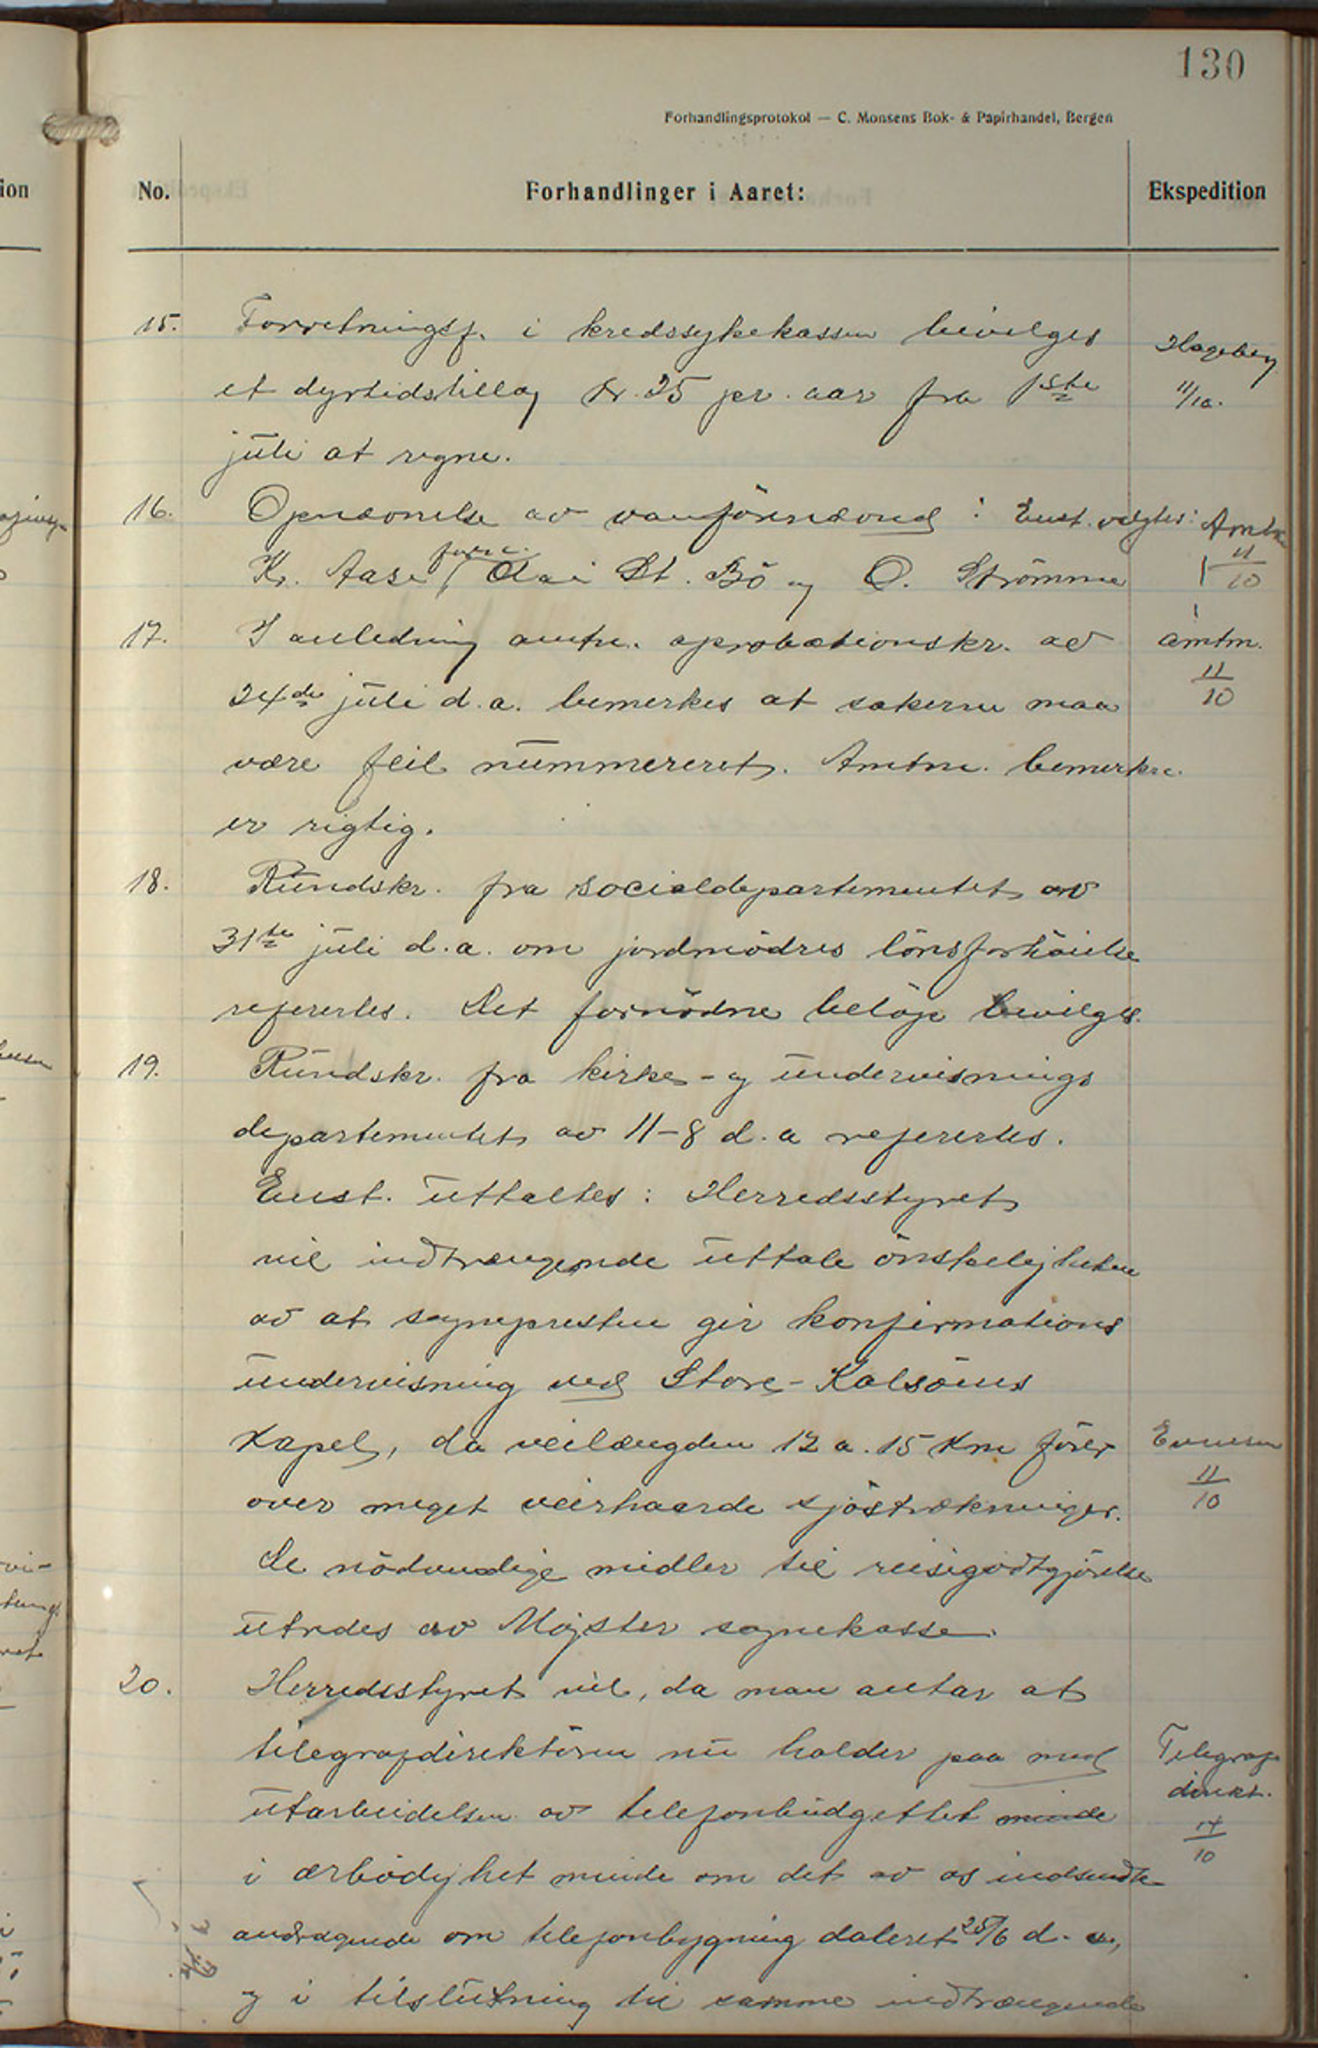 130
Forhandlingsprotokol — C. Monsens Bok- & Papirhandel, Bergen
ion
No.
Forhandlinger i Aaret:
Ekspedition
15. Forretningsf. i kredssykekassen bevilges
et dyrtidstillæg kr. 25 pr. aar fra 1ste
juli at regne.
Hageberg
11/10.
16. Opnævnelse av vanförenævnd: Enst. valgtes:
Kr. Aase form. Olai St. Bö og O. Strömme
Amtm
11/10
17. I anledning amtm. aprobationskr. av
24de juli d.a. bemerkes at sakerne maa
være feil nummereret. Amtm. bemerkn.
er rigtig.
amtm.
11/10
18. Rundskr. fra socialdepartementet av
31te juli d.a. om jordmödres lönsforhöielse
refereres. Det fornödne belöp bevilges.
19. Rundskr. fra kirke- og undervisnings
departementet av 11-8 d.a refereres.
Enst. uttaltes: Herredsstyret
vil indtrængende uttale önskeligheten
av at sognepresten gir konfirmations
undervisning ved Store-Kalsöens
kapel, da veilængden 12 a. 15 km förer
over meget veirhaarde sjöstrækninger.
De nödvendige midler til reisegodtgjörelse
utredes av Mögster sognekasse.
Evensen
11/10
20. Herredsstyret vil, da man antar at
telegrafdirektören nu holder paa med
utarbeidelsen av telefonbudgettet minde
i ærbödighet minde om det av os indsendte
andragende om telefonbygning dateret 28/6 d.a.,
og i tilslutning til samme indtrængende
Telegraf
direkt.
14/10